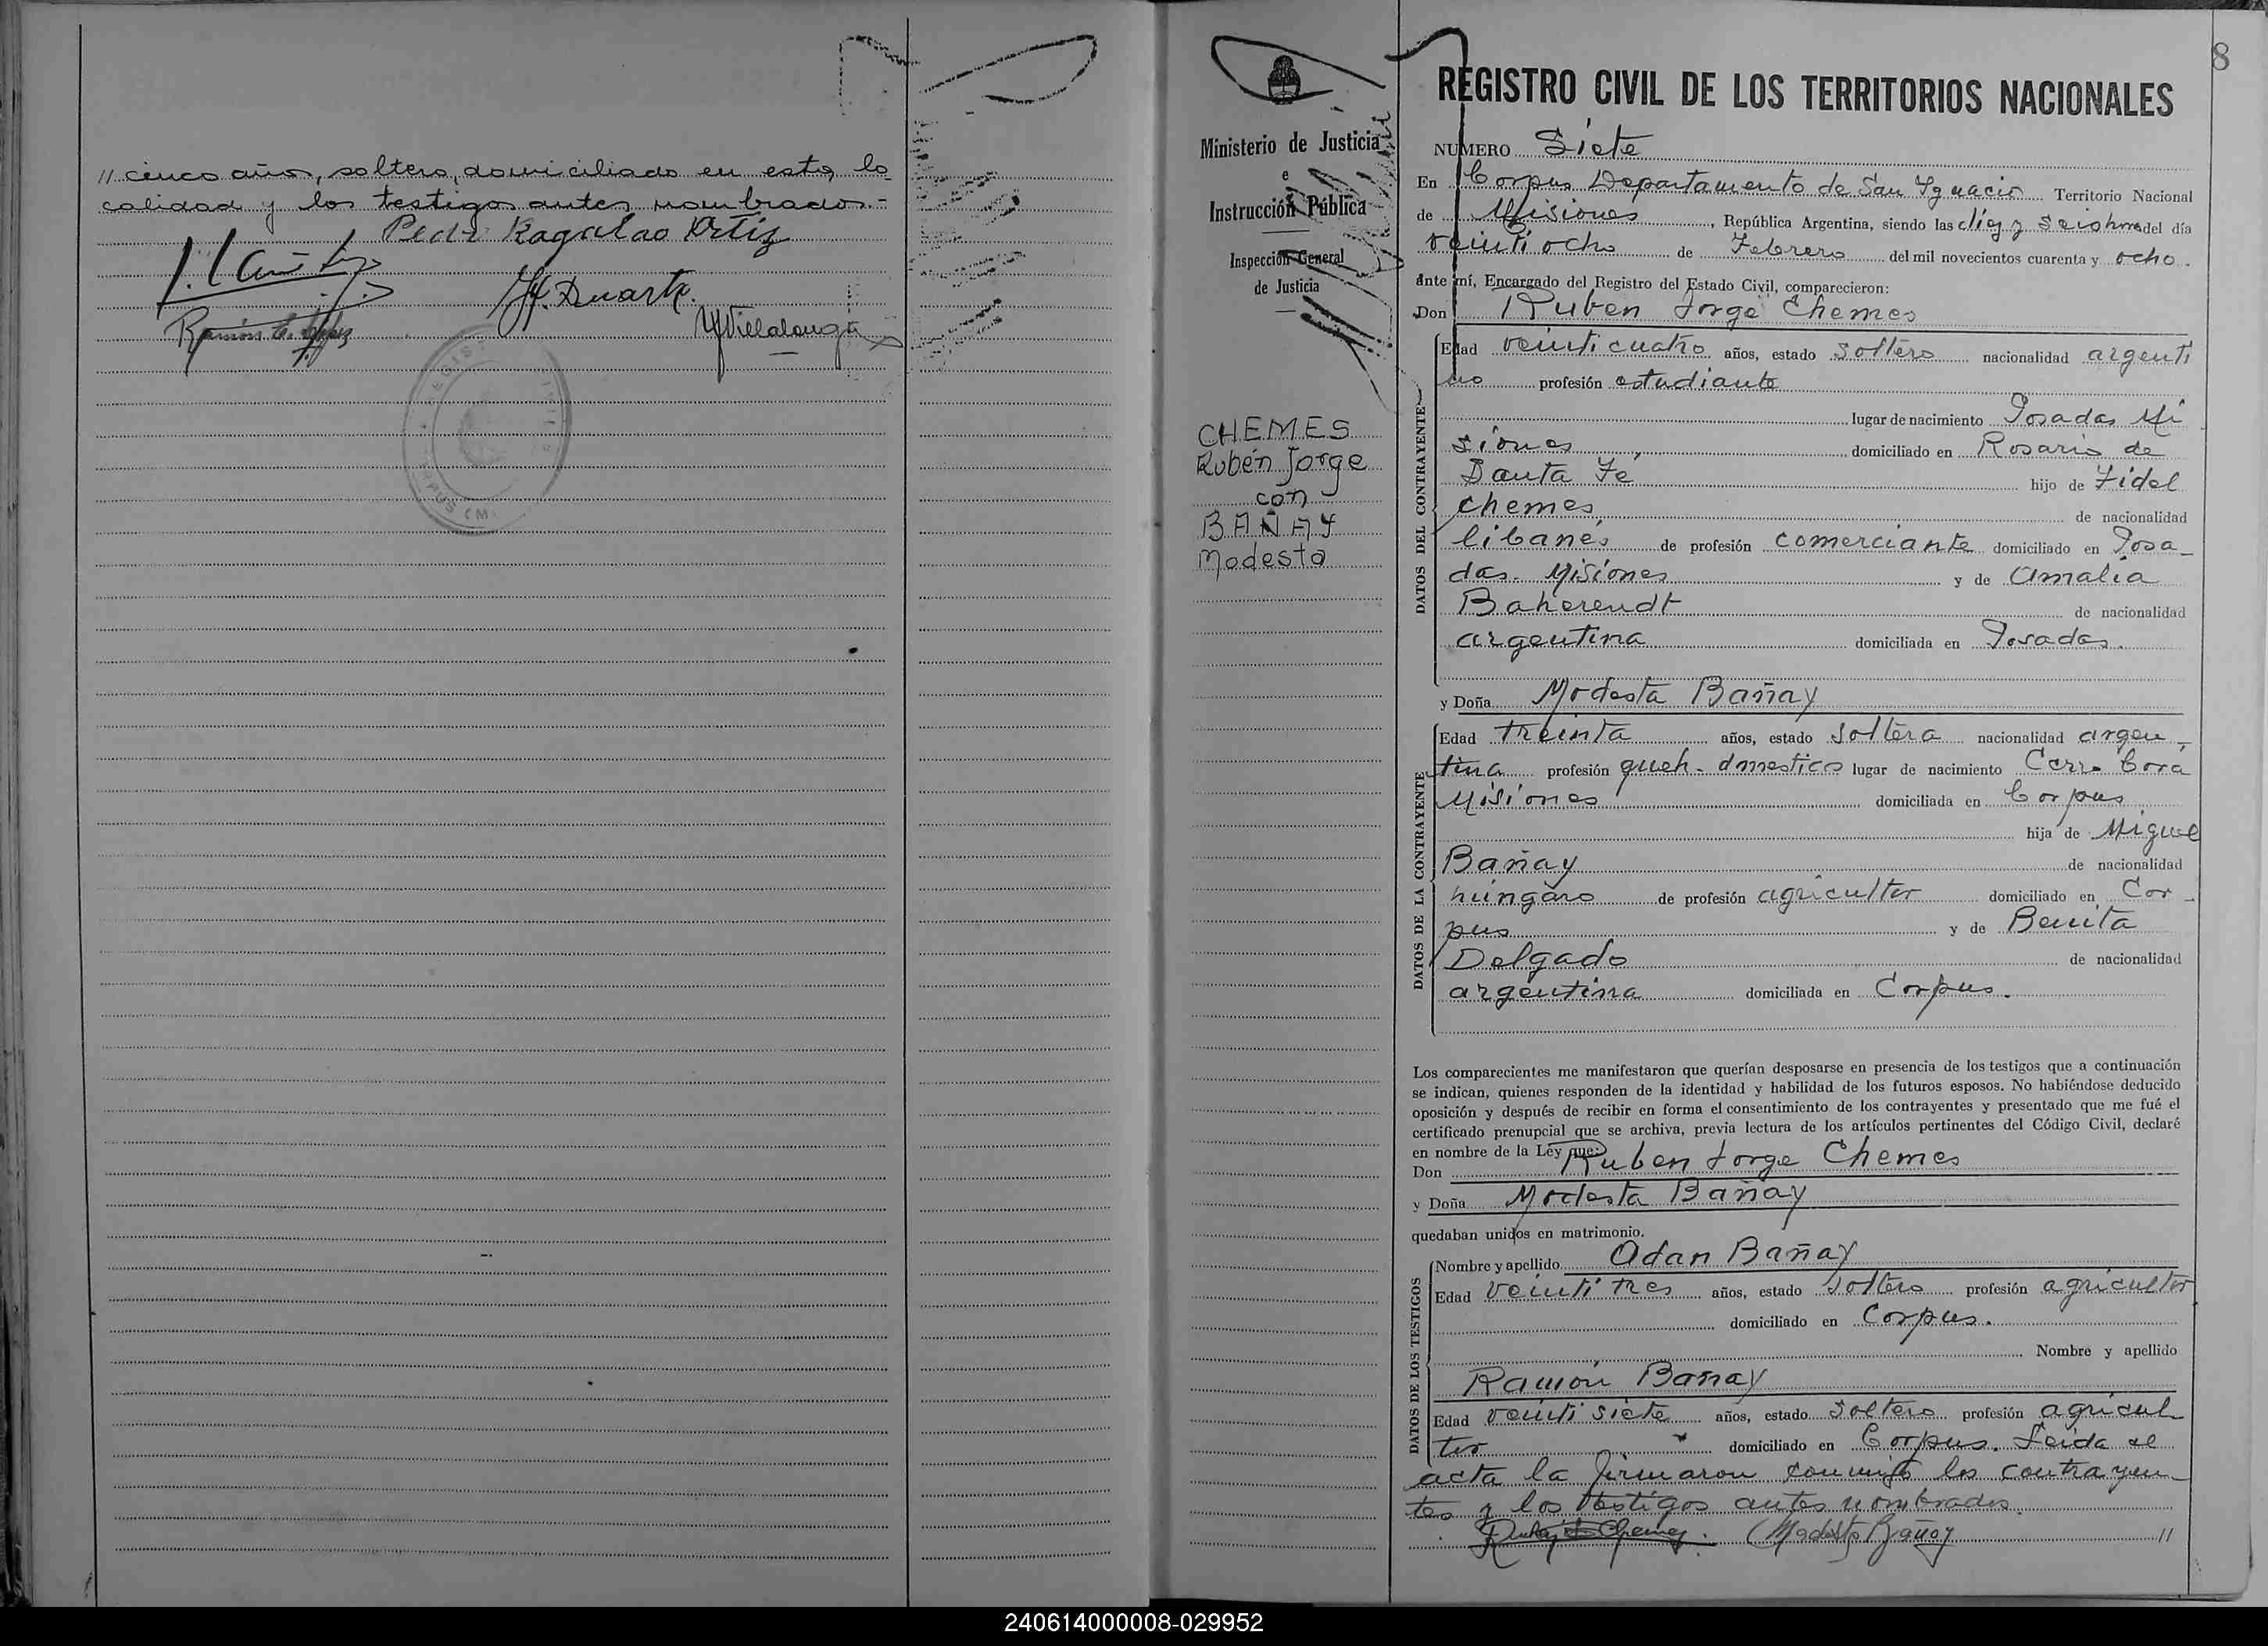 // cinco años, soltero, domiciliado en esta lo
calidad y los testigos antes nombrados.-
Ortiz
H. Duarte.
Villalonga
Ministerio de Justicia
e
Instrucción Pública
Inspección General
de Justicia
CHEMES
Rubén Jorge
con
BAÑAY
Modesta
8
REGISTRO CIVIL DE LOS TERRITORIOS NACIONALES
NUMERO Siete
En Corpus Departamento de San Ignacio Territorio Nacional
de Misiones, República Argentina, siendo las diez y seis horas del día
veinti ocho de Febrero del mil novecientos cuarenta y ocho.
Ante mí, Encargado del Registro del Estado Civil, comparecieron:
Don Ruben Jorge Chemes
DATOS DEL CONTRAYENTE
Edad veinti cuatro años, estado soltero nacionalidad argenti
no profesión estudiante
lugar de nacimiento Posadas Mi
siones domiciliado en Rosario de
Santa Fé hijo de Fidel
Chemes de nacionalidad
libanés de profesión comerciante domiciliado en Posa-
das. Misiones y de Amalia
Baherendt de nacionalidad
argentina domiciliada en Posadas.
y Doña Modesta Bañay
DATOS DE LA CONTRAYENTE
Edad treinta años, estado soltera nacionalidad argen-
tina profesión queh. domestico lugar de nacimiento Cerro Corá
Misiones domiciliada en Corpus
hija de Miguel
Bañay de nacionalidad
húngaro de profesión agricultor domiciliado en Cor-
pus y de Benita
Delgado de nacionalidad
argentina domiciliada en Corpus.
Los comparecientes me manifestaron que querían desposarse en presencia de los testigos que a continuación
se indican, quienes responden de la identidad y habilidad de los futuros esposos. No habiéndose deducido
oposición y después de recibir en forma el consentimiento de los contrayentes y presentado que me fué el
certificado prenupcial que se archiva, previa lectura de los artículos pertinentes del Código Civil, declaré
en nombre de la Ley que:
Don Ruben Jorge Chemes
y Doña Modesta Bañay
quedaban unidos en matrimonio.
DATOS DE LOS TESTIGOS
Nombre y apellido Adan Bañay
Edad veinti tres años, estado soltero profesión agricultor
domiciliado en Corpus.
Nombre y apellido
Ramón Bañay
Edad veinti siete años, estado soltero profesión agricul
tor domiciliado en Corpus. Leída el
acta la firmaron conmigo los contrayen-
tes y los testigos antes nombrados
Modesta Bañay //
240614000008-029952